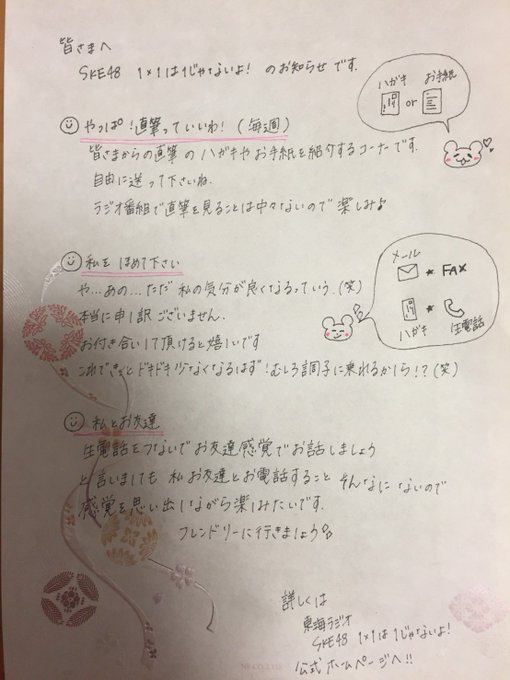 皆さまへ
SKE48 1×1は1じゃないよ! のお知らせです.
ハガキ or お手紙
やっぱ!直筆っていいわ! (毎週)
皆さまからの直筆のハガキやお手紙を紹介するコーナーです.
自由に送って下さいね.
ラジオ番組で直筆を見ることは中々ないので楽しみ♪
私をほめて下さい
や…あの…ただ私の気分が良くなるっていう.(笑)
本当に申し訳ございません.
お付き合いして頂けると嬉しいです
これできっとドキドキしなくなるはず!むしろ調子に乗れるかしら!?(笑)
メール ★ FAX
ハガキ ★ 生電話
私とお友達
生電話をつないでお友達感覚でお話しましょう
と言いましても 私お友達とお電話すること そんなに ないので
感覚を思い出しながら楽しみたいです.
フレンドリーに行きましょう♪
詳しくは
東海ラジオ
SKE48 1×1は1じゃないよ!
公式ホームページへ!!